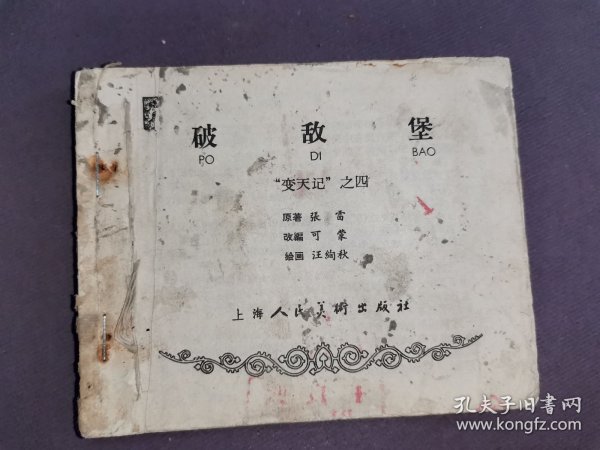 破 敌 堡
PO DI BAO
“变天记”之四
原著 张 雷
改编 可 蒙
绘画 汪绚秋
上海人民美術出版社
孔夫子旧書网
www.kongfz.com